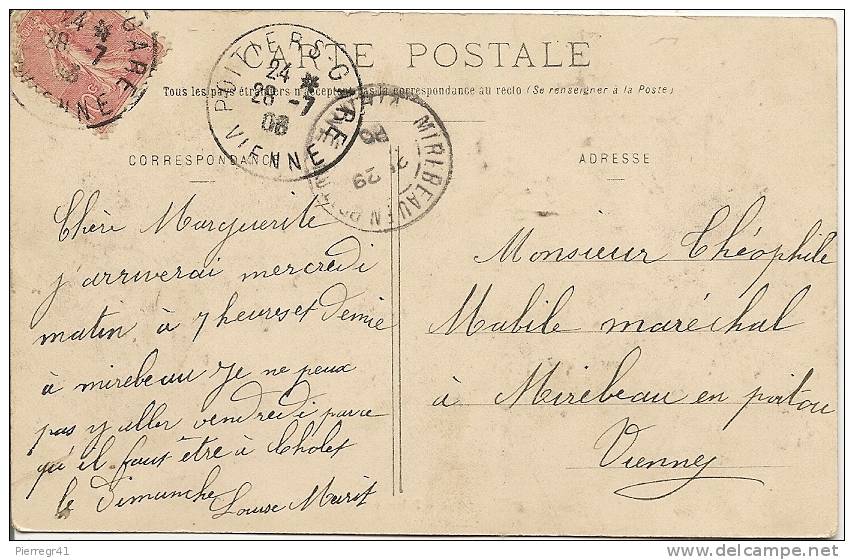 CARTE POSTALE
Tous les pays étrangers n'acceptent pas la correspondance au recto (Se renseigner à la Poste)
POITIERS-GARE
24
28 -7
VIENNE
CORRESPONDANCE
ADRESSE
MIREBEAU-EN-POITOU
29
GARE
24
28 -7
VIENNE
Chère Marguerite
j'arriverai mercredi
matin à 7 heures et demie
à mirebeau je ne peux
pas y aller vendredi parce
qu'il faut être à Cholet
le dimanche
Louise
Monsieur Théophile
Mabile maréchal
à Mirebeau en poitou
Vienne
Pierregr41
delcampe.net